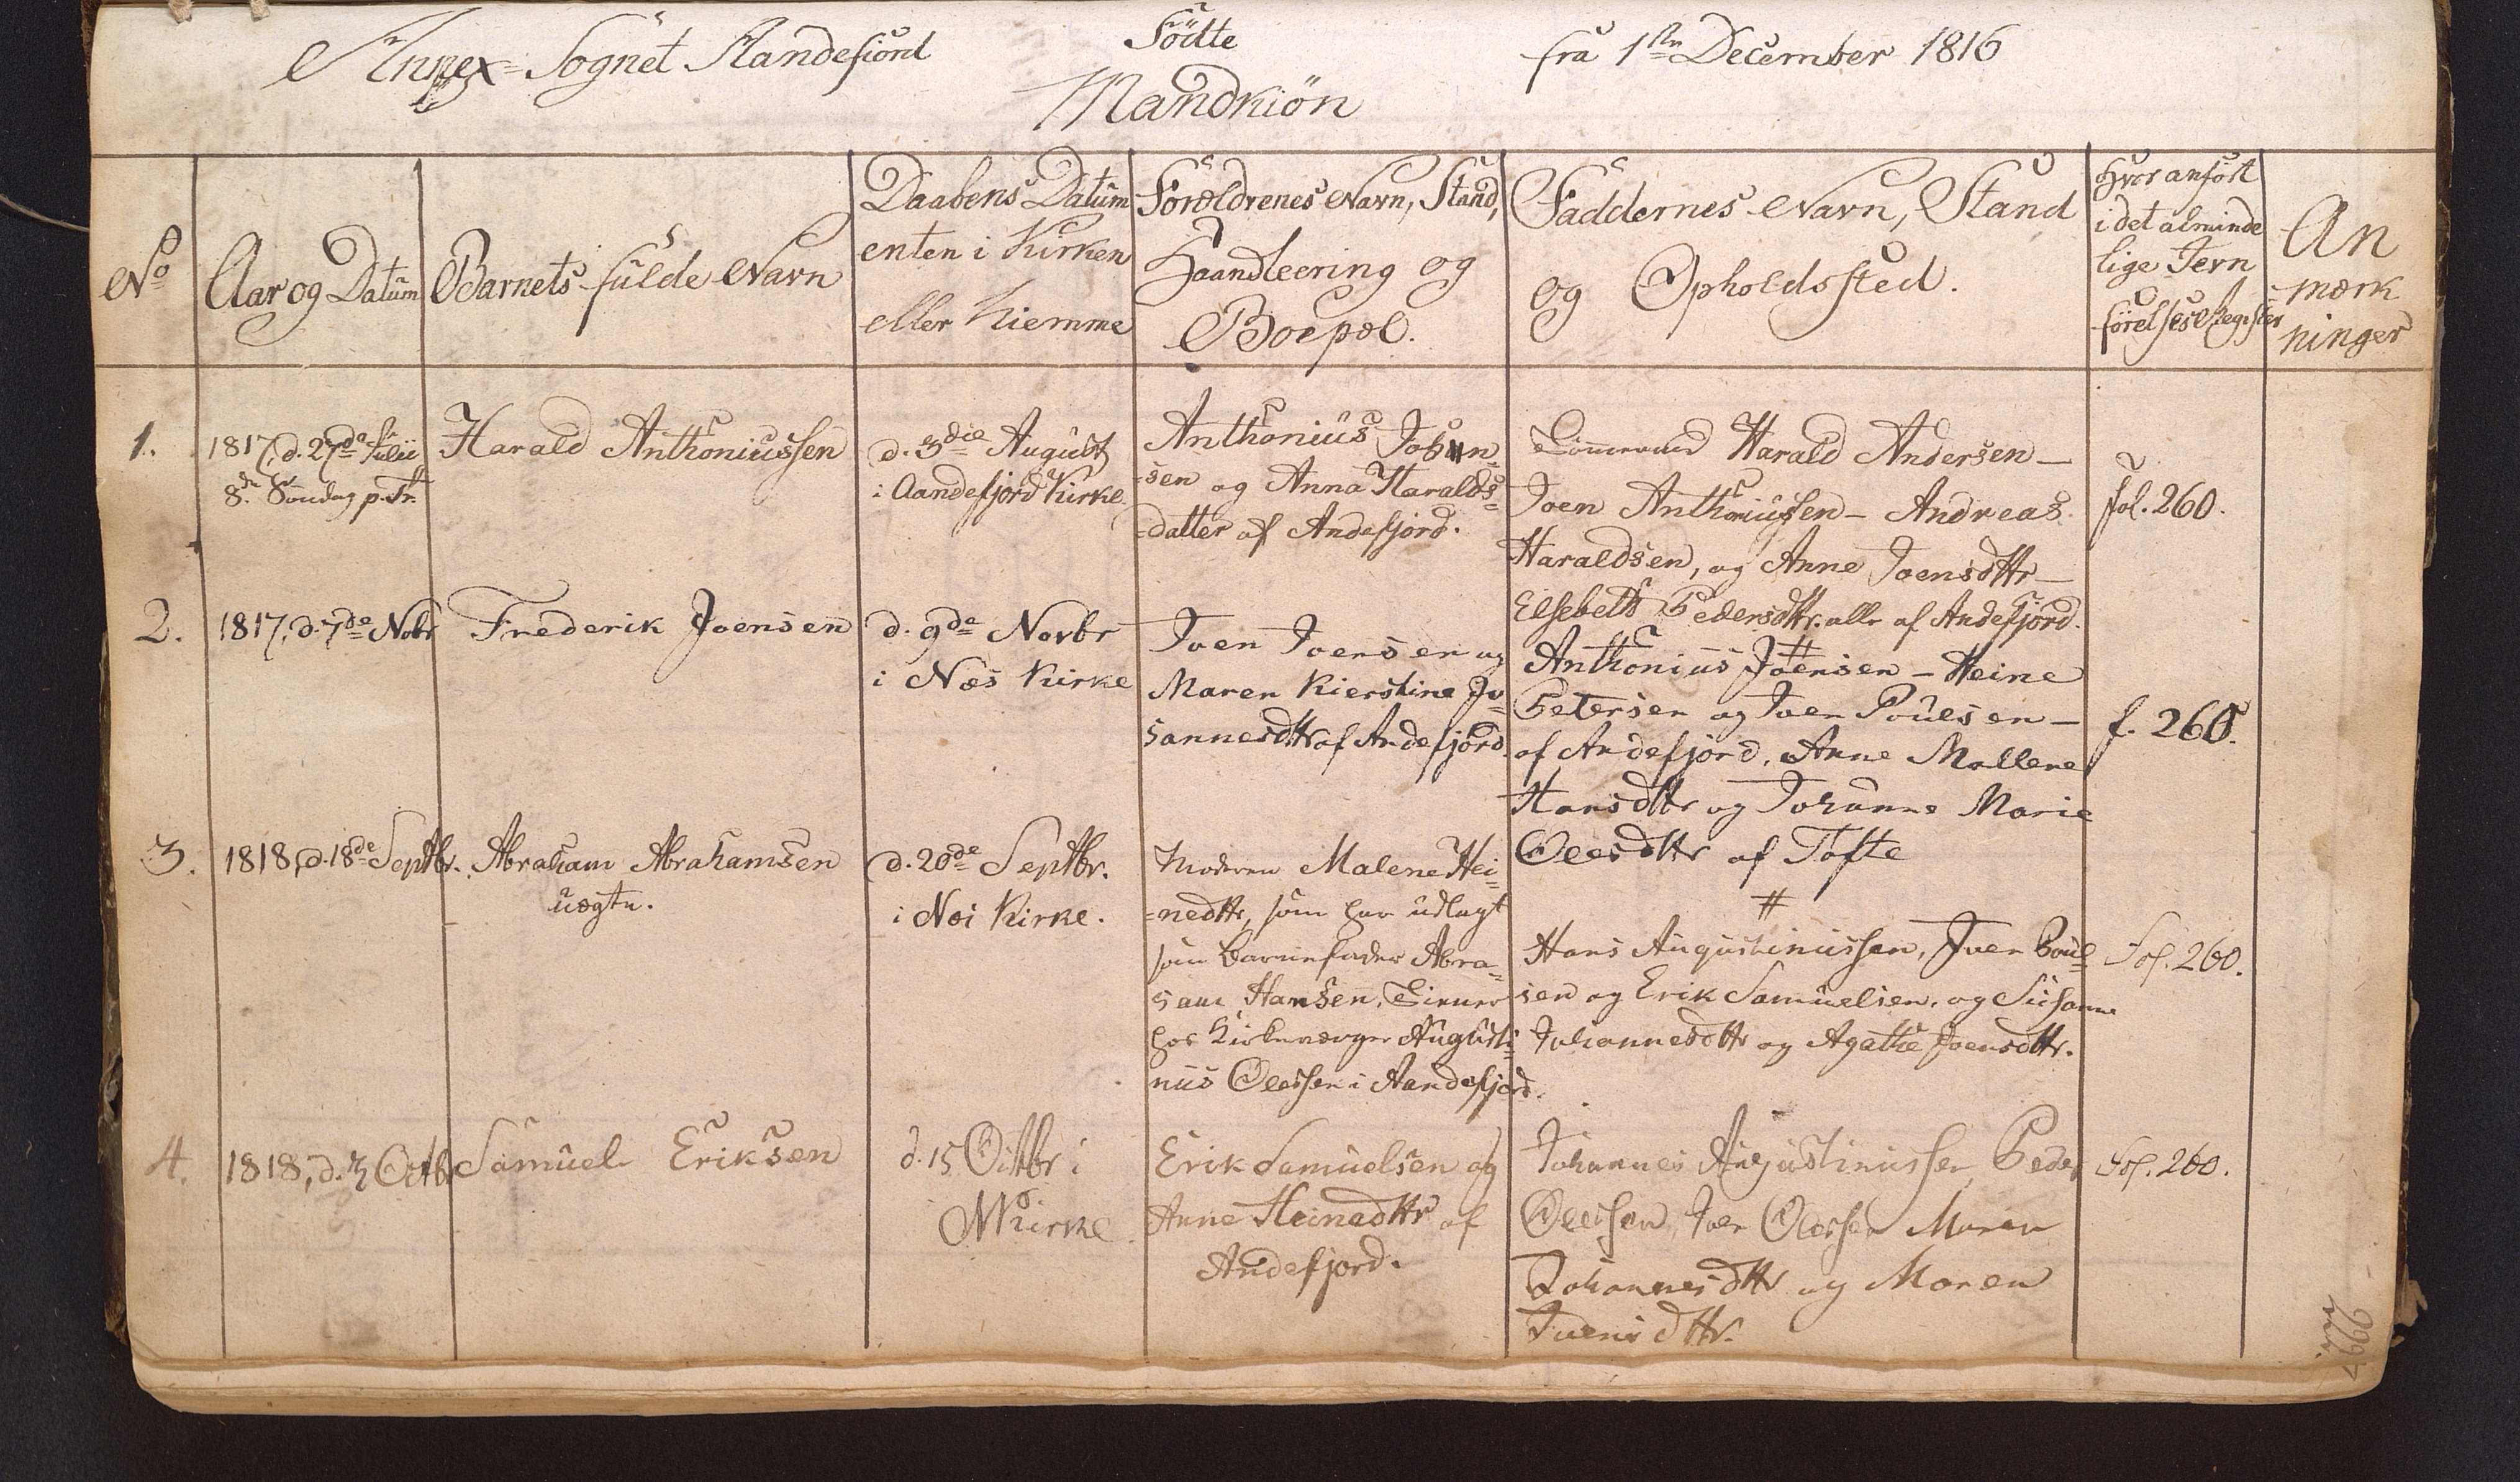 Annex-Sognet Aandefiord Födte fra 1ste December 1816
Mandkiön
No
Aar og Datum
Barnets fulde Navn
Daabens Datum
enten i Kirken
eller Hiemme
Forældrenes Navn, Stand,
Haandteering og
Boepæl.
Faddernes Navn, Stand
og Opholdssted.
Hvor anfört
i det alminde
lige Jevn
förelses Register
An
mærk
ninger
1.
1817, d. 27de Julii
8de Söndag p. Tr.
Harald Anthoniussen
d. 3die August
i Aandefjord Kirke
Anthonius Joen-
-sen og Anna Haralds-
-datter af Andefjord.
Harald Andersen –
Joen Anthoniussen – Andreas
Haraldsen, og Anne Joensdttr –
Elsebeth Pedersdttr. alle af Andefjord.
fol. 260.
2.
1817, d. 7de Nobr
Frederik Joensen
d. 9de Novbr
i Næs Kirke
Joen Joensen og
Maren Kierstine Jo-
hannesdttr af Andefjord.
#
Anthonius Joensen – Heine
Petersen og Joen Poulsen –
af Andefjord, Anne Mallene
Hansdttr og Johanne Marie
Olesdttr af Tofte
#
f. 260.
3.
1818, d. 18de Septbr.
Abraham Abrahamsen
uægte.
d. 20de Septbr.
i Næs Kirke.
Moderen Malene Hei-
-nedttr, som har udlagt
som Barnefader Abra-
ham Hansen, Tiener
hos Kirkeværger Augusti-
nus Olessen i Aandefjord.
Hans Augustinussen, Joen Poul-
sen og Erik Samuelsen, og Susanne
Johannesdttr og Agathe Joensdttr.
Fol. 260.
4.
1818, d. 3 Octbr
Samuel Eriksen
d. 15 Octbr i
N Kirke
Erik Samuelsen og
Anne Heinedttr af
Andefjord.
Johannes Augustinussen Peder
Olessen, Joen Olessen Maren
Johannesdttr og Maren
Joensdttr.
Fol. 260.